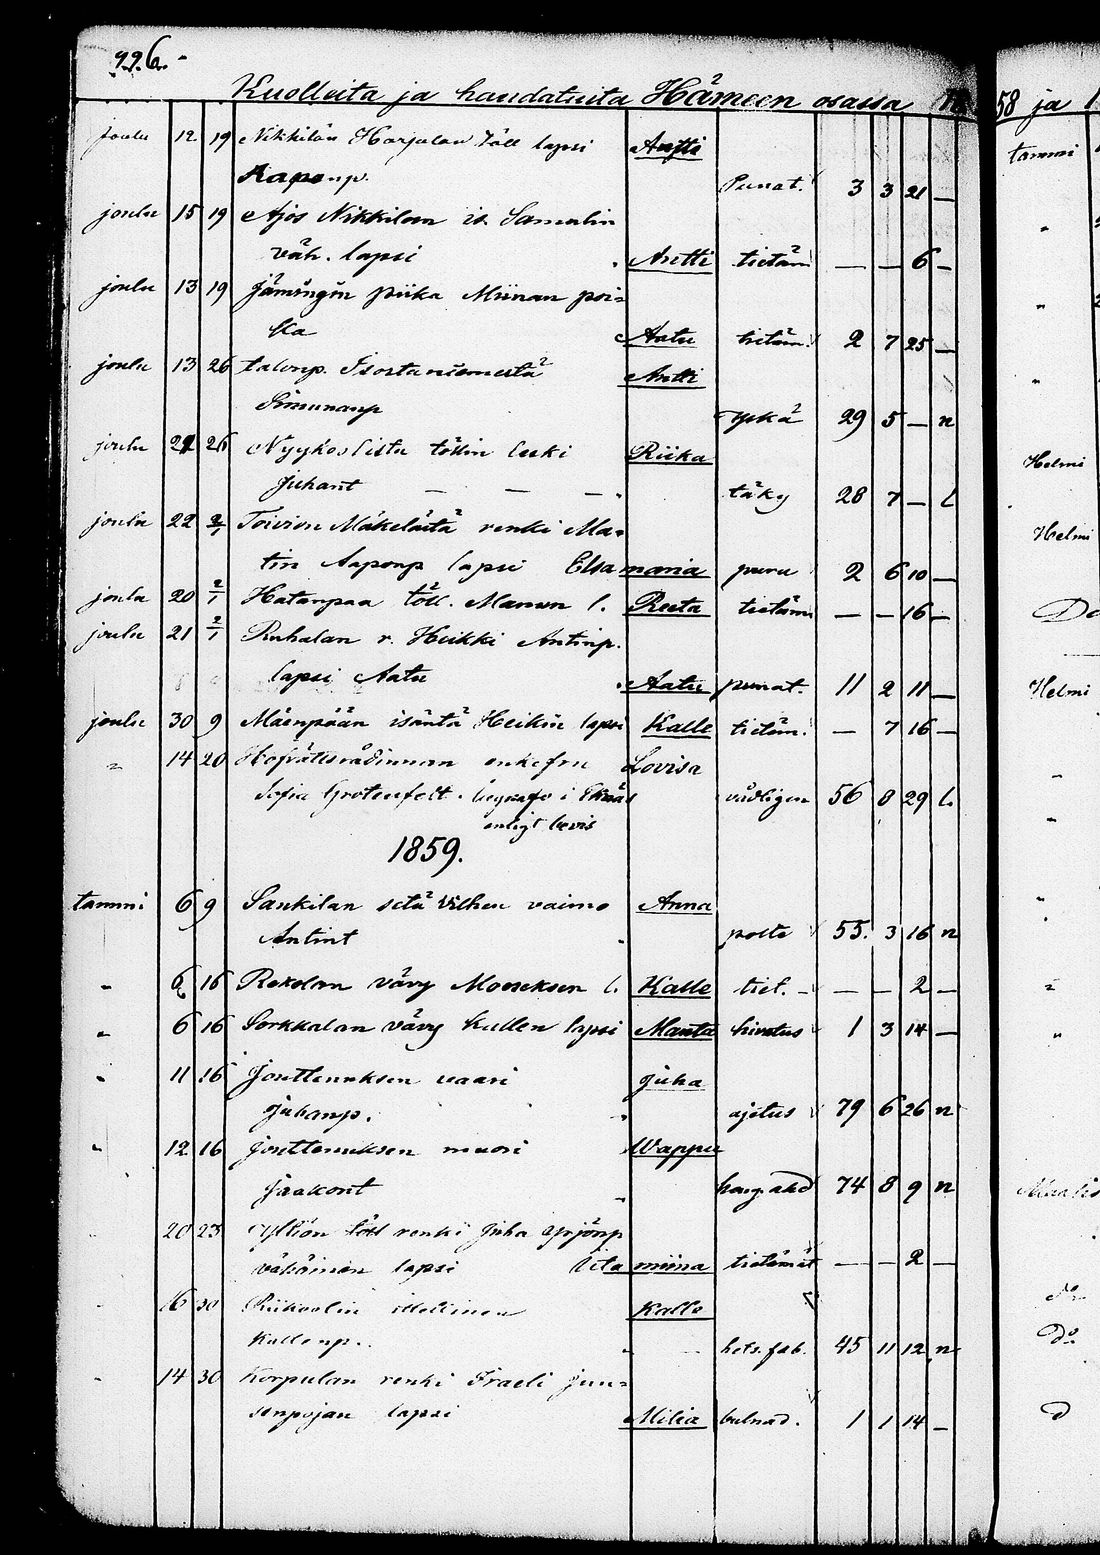 226.
Kuolleita ja haudatuita Hämeen osassa
joulu 12 19 Nikkilän Harjulan töll lapsi Antti
Aaponp. Punat. 3 3 21 —
joulu 15 19 Ajos Nikkilän is. Samulin
väh. lapsi Antti tietäm — — 6 —
joulu 13 19 Jämingin piika Miinan poi=
ka Aatu tietäm 2 7 25 —
joulu 13 26 talonp. Isosta niemestä Antti
Simunanp ypkä 29 5 — n
joulu 21 26 töllin leski Riika
Juhant — — — täky 28 7 — l
joulu 22 2/1 Toivion Mäkelästä renki Ma=
tin Aaponp lapsi Elsa maria puru 2 6 10 —
joulu 20 2/1 Hatanpää töll. Manun l. Reeta tietäm — — 16 —
joulu 21 2/1 Ruhalan r. Heikki Antinp.
lapsi Aatu Aatu punat. 11 2 11 —
joulu 30 9 Mäenpään isäntä Heikin lapsi Kalle tietäm. — 7 16 —
" 14 20 Hofrättsrådinnan enkefru Lovisa
Sofia Grotenfelt. begrafv i Eknäs vådligen 56 8 29 l.
enligt bevis
1859.
tammi 6 9 Sankilan setä Vilhen vaimo Anna
Antint polte 55. 3 16 n
" 6 16 Rekolan vävy Moseksen l. Kalle tiet. — — — 2 —
" 6 16 Sorkkalan vävy Kallen lapsi Manta hivutus 1 3 14 —
" 11 16 Jouttenuksen vaari Juha
Juhanp. ajetus 79 6 26 n
" 12 16 Jouttenuksen muori Wappu
Jaakont heng.ahd 74 8 9 n
20 23 Yllön töll renki Juha Yrjönp
väkäinen lapsi Vita miina tietämät — — 2 —
16 30 itellinen Kalle
Kallenp. hets.feb. 45 11 12 n
14 30 Korpulan renki Israeli Juu=
senpojan lapsi Milia bulnad. 1 1 14 —
58 ja 1
tammi
"
"
"
Helmi
Helmi
Do
Helmi
"
"
"
"
"
Maalis
do
Do
d